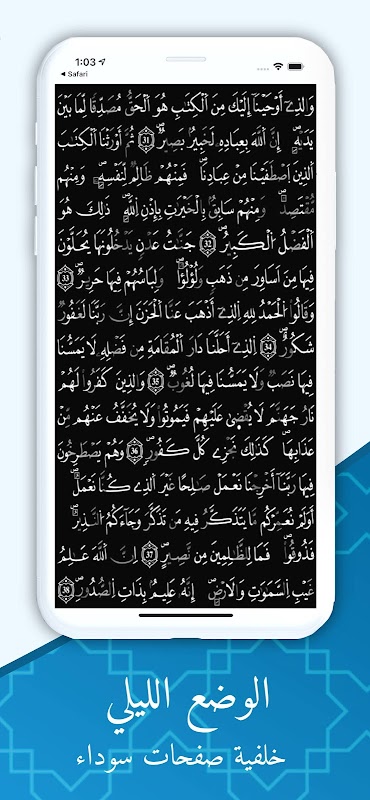 1:03
Safari
وَالذِےٓ أَوْحَيْنَآ إِلَيْكَ مِنَ اَلْكِتَٰبِ هُوَ اَلْحَقُّ مُصَدِّقاٗ لِّمَا بَيْنَ
يَدَيْهِۖ إِنَّ اَللَّهَ بِعِبَادِهِۦ لَخَبِيرُۢ بَصِيرٞۖ 31 ثُمَّ أَوْرَثْنَا اَلْكِتَٰبَ
اَلذِينَ اَصْطَفَيْنَا مِنْ عِبَادِنَاۖ فَمِنْهُمْ ظَالِمٞ لِّنَفْسِهِۦۖ وَمِنْهُم
مُّقْتَصِدٞۖ وَمِنْهُمْ سَابِقُۢ بِالْخَيْرَٰتِ بِإِذْنِ اِللَّهِۖ ذَٰلِكَ هُوَ
اَلْفَضْلُ اُلْكَبِيرُۖ 32 جَنَّٰتُ عَدْنٖ يَدْخُلُونَهَا يُحَلَّوْنَ
فِيهَا مِنَ اَسَاوِرَ مِن ذَهَبٖ وَلُؤْلُؤاٗۖ وَلِبَاسُهُمْ فِيهَا حَرِيرٞۖ 33
وَقَالُواْ اُلْحَمْدُ لِلهِ اِلذِےٓ أَذْهَبَ عَنَّا اَلْحَزَنَ إِنَّ رَبَّنَا لَغَفُورٞ
شَكُورٌۖ 34 اِلذِےٓ أَحَلَّنَا دَارَ اَلْمُقَامَةِ مِن فَضْلِهِۦ لَا يَمَسُّنَا
فِيهَا نَصَبٞ وَلَا يَمَسُّنَا فِيهَا لُغُوبٞۖ 35 وَالذِينَ كَفَرُواْ لَهُمْ
نَارُ جَهَنَّمَ لَا يُقْضَىٰ عَلَيْهِمْ فَيَمُوتُواْ وَلَا يُخَفَّفُ عَنْهُم مِّنْ
عَذَابِهَاۖ كَذَٰلِكَ نَجْزِے كُلَّ كَفُورٖۖ 36 وَهُمْ يَصْطَرِخُونَ
فِيهَا رَبَّنَآ أَخْرِجْنَا نَعْمَلْ صَٰلِحاً غَيْرَ اَلذِے كُنَّا نَعْمَلُۖ
أَوَلَمْ نُعَمِّرْكُم مَّا يَتَذَكَّرُ فِيهِ مَن تَذَكَّرَ وَجَآءَكُمُ اُلنَّذِيرُۖ
فَذُوقُواْۖ فَمَا لِلظَّٰلِمِينَ مِن نَّصِيرٍۖ 37 اِنَّ اَللَّهَ عَٰلِمُ
غَيْبِ اِلسَّمَٰوَٰتِ وَالَارْضِۖ إِنَّهُۥ عَلِيمُۢ بِذَاتِ اِلصُّدُورِۖ 38
الوضع الليلي
خلفية صفحات سوداء